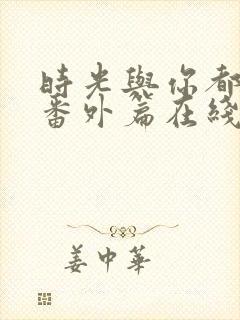 時光與你都
番外篇在綫
姜中華